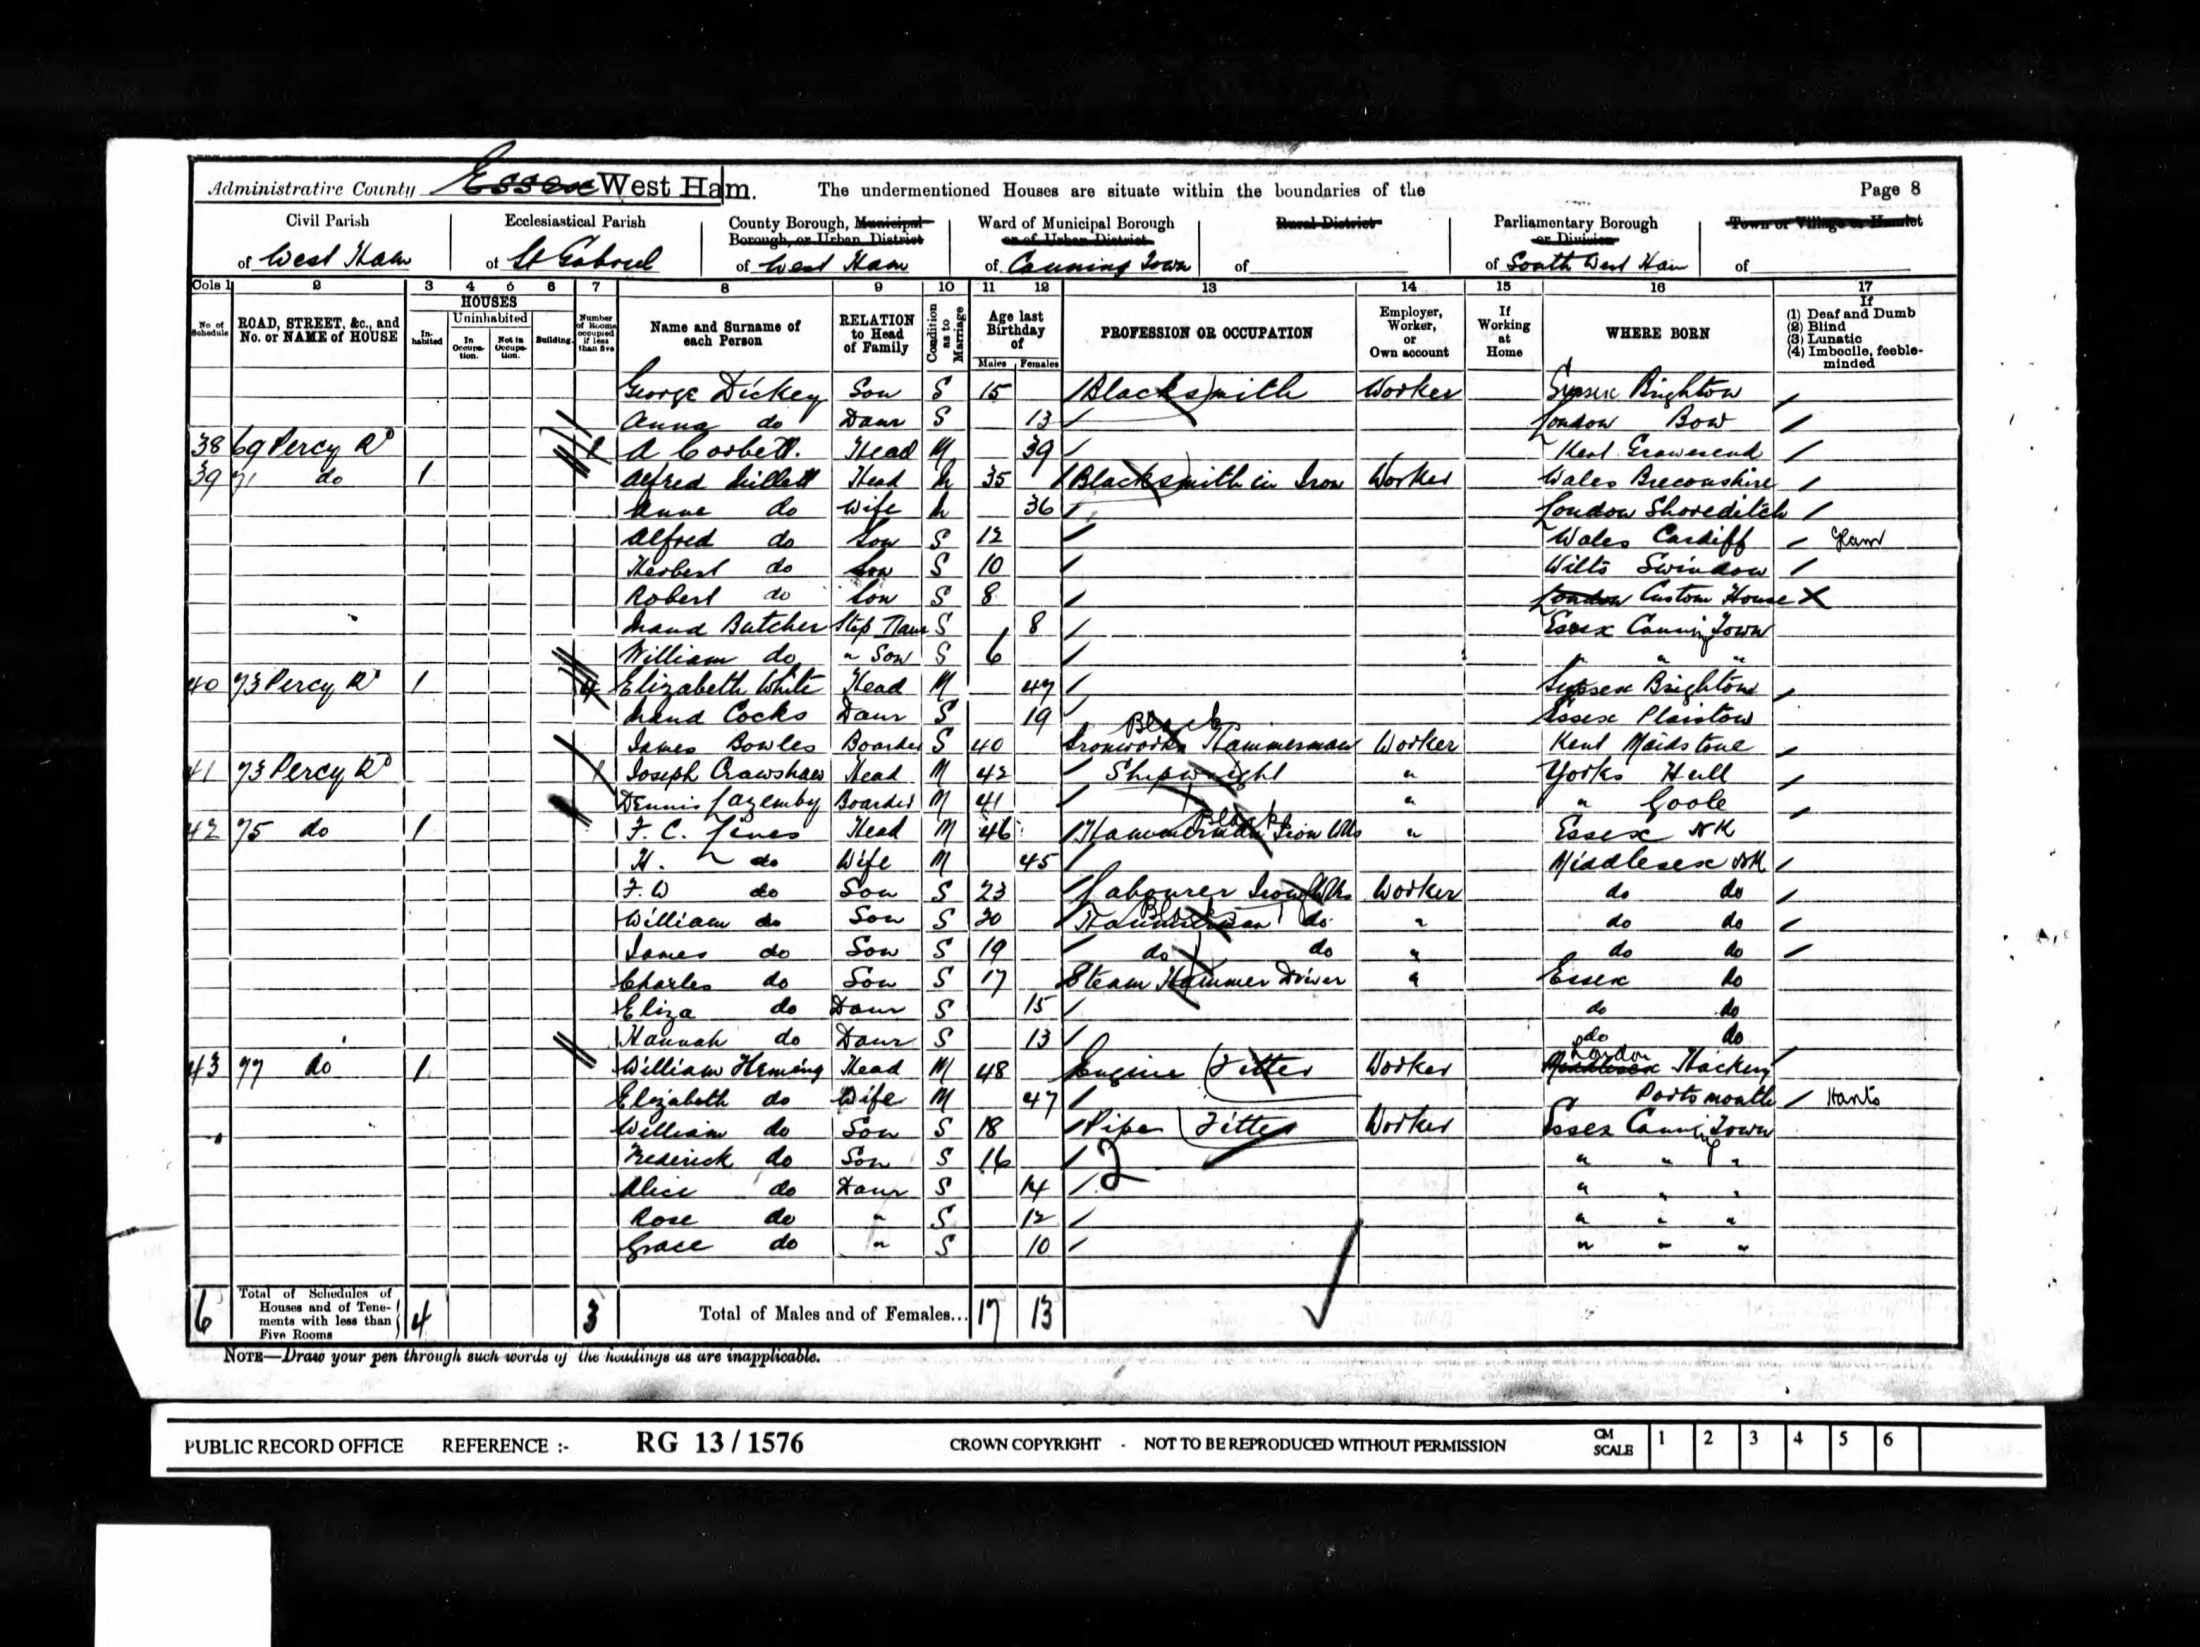 Administrative County Essex West Ham. The undermentioned Houses are situate within the boundaries of the Page 8
Civil Parish Ecclesiastical Parish County Borough, Municipal Ward of Municipal Borough Rural District Parliamentary Borough Town or Village or Hamlet
Borough, or Urban District or of Urban District or Division
of West Ham of St Gabriel of West Ham of Canning Town of of South West Ham of
Cols 1 2 3 4 5 6 7 8 9 10 11 12 13 14 15 16 17
No of Schedule ROAD, STREET, &c., and No. or NAME of HOUSE HOUSES In-habited Uninhabited In Occupa-tion. Not in Occupa-tion. Building. Number of Rooms occupied if less than five Name and Surname of each Person RELATION to Head of Family Condition as to Marriage Age last Birthday of Males Females PROFESSION OR OCCUPATION Employer, Worker, or Own account If Working at Home WHERE BORN If (1) Deaf and Dumb (2) Blind (3) Lunatic (4) Imbecile, feeble-minded
George Dickey Son S 15 Blacksmith Worker Sussex Brighton
Anna do Daur S 13 London Bow
38 69 Percy Rd 1 A Corbett. Head M 39 Kent Gravesend
39 71 do 1 Alfred Millett Head M 35 Blacksmith in Iron Worker Wales Breconshire
Anne do Wife M 36 London Shoreditch
Alfred do Son S 12 Wales Cardiff Glam
Herbert do Son S 10 Wilts Swindon
Robert do Son S 8 London Custom House X
Maud Butcher Step Daur S 8 Essex Canning Town
William do " Son S 6 " " "
40 73 Percy Rd 1 4 Elizabeth White Head M 47 Sussex Brighton
Maud Cocks Daur S 19 Essex Plaistow
James Bowles Boarder S 40 Black Ironworks Hammerman Worker Kent Maidstone
41 73 Percy Rd 1 Joseph Crawshaw Head M 42 Shipwright " Yorks Hull
Dennis Lazemby Boarder M 41 " " Goole
42 75 do 1 F. C. Lines Head M 46 Black Hammerman Iron Wks " Essex NK
H. do Wife M 45 Middlesex NK
F. W do Son S 23 Labourer Iron Wks Worker do do
William do Son S 20 Black Hammerman do " do do
James do Son S 19 do do " do do
Charles do Son S 17 Steam Hammer Driver " Essex do
Eliza do Daur S 15 do do
Hannah do Daur S 13 do do
43 77 do 1 William Heming Head M 48 Engine Fitter Worker Middlesex London Hackney
Elizabeth do Wife M 47 Portsmouth Hants
William do Son S 18 Pipe Fitter Worker Essex Canning Town
Frederick do Son S 16 2 " " "
Alice do Daur S 14 " " "
Rose do " S 12 " " "
Grace do " S 10 " " "
6 Total of Schedules of Houses and of Tene-ments with less than Five Rooms 4 3 Total of Males and of Females... 17 13
NOTE—Draw your pen through such words of the headings as are inapplicable.
PUBLIC RECORD OFFICE REFERENCE :- RG 13 / 1576 CROWN COPYRIGHT - NOT TO BE REPRODUCED WITHOUT PERMISSION CM SCALE 1 2 3 4 5 6